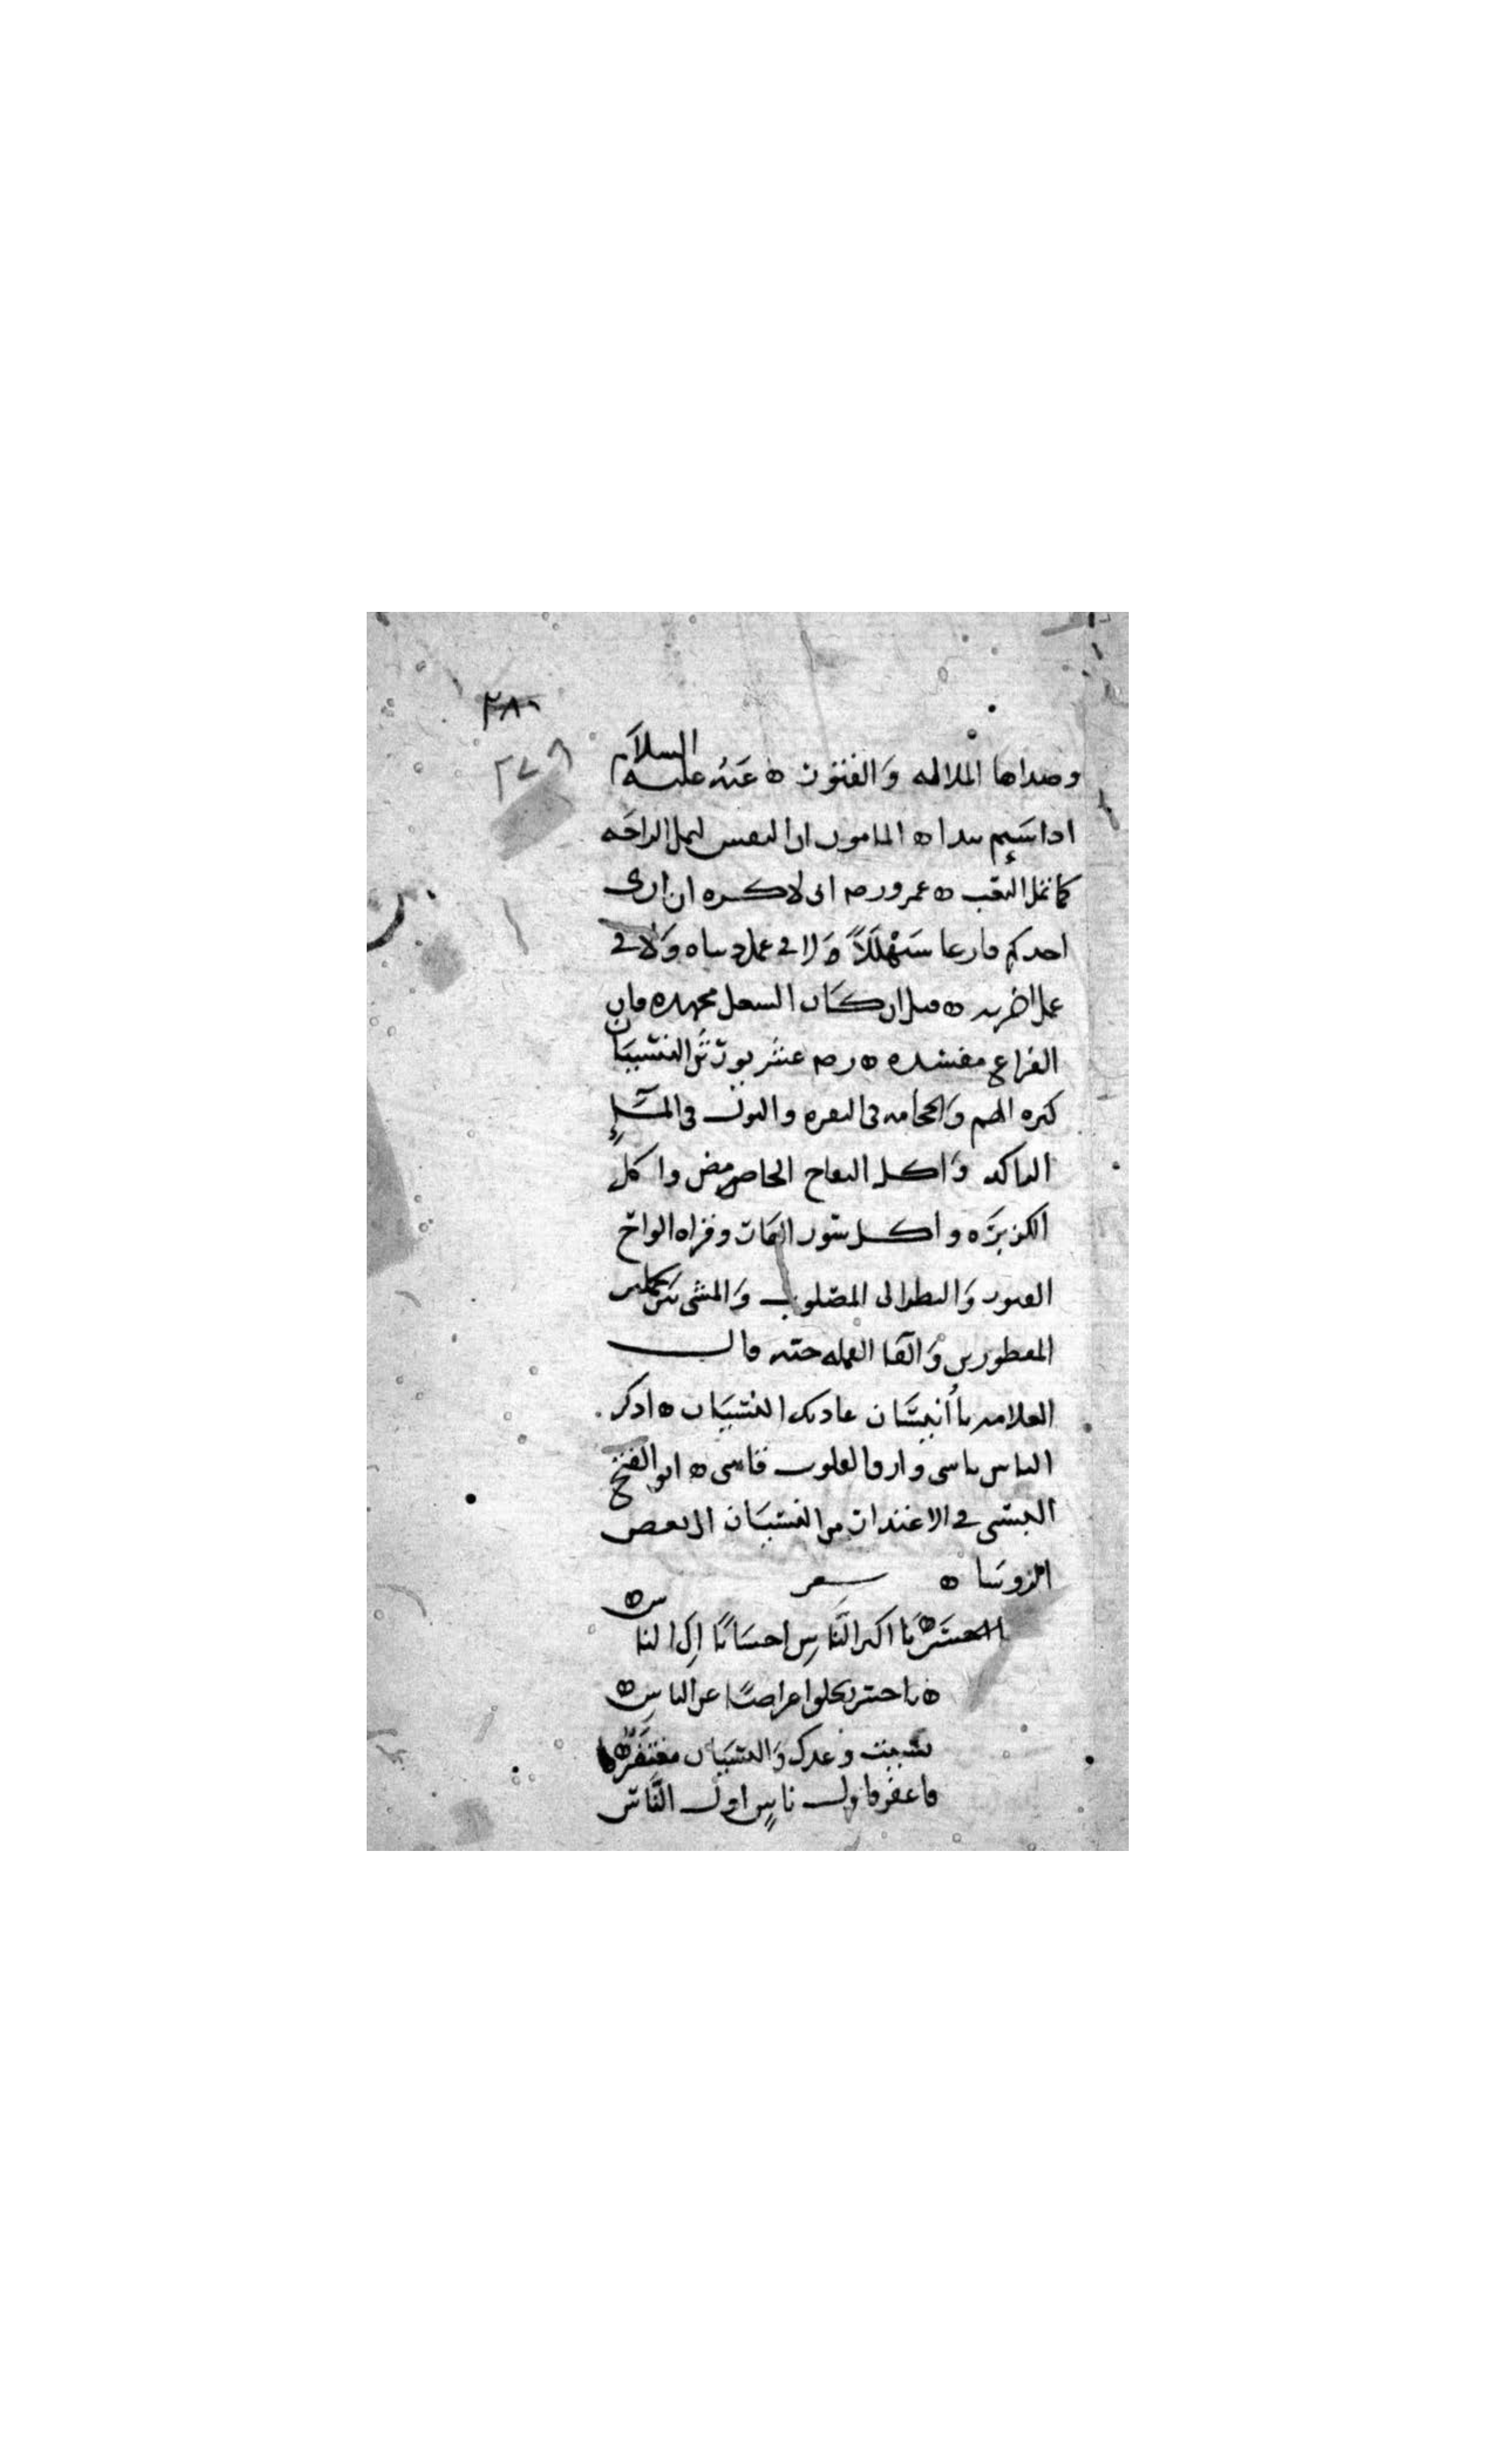 ٢٨٠
٢٧٨
وصداها الملاله والفتور ه عنه عليه السلام
المامون ان النفس لتمل الراحه
كما تمل التعب ه عمر رضه انى لاكره ان ارى
احدكم فارغا سبهللا ولا فى عمل دنياه ولا فى
عمل اخرته ه قيل ان كان الشغل مجهده فان
الفراغ مفسده ه عشر يورثن النسيان
كثره الهم والحجامه فى النقره والبول فى الماء
الراكد واكل التفاح الحامض واكل
الكزبره واكل سور الفار وقراه الواح
القبور والنظر الى المصلوب والمشى بين جملين
المقطورين والقا القمله حيه قال
العلامه يا انيسان عادتك النسيان ه اذكر
الناس ناسى وارق القلوب قاسى ه ابو الفتح
البستى فى الاعتذار من النسيان الى بعض
الروسا ه شعر
يا اكثر الناس احسانا الى الناس ه
ه يا احسن اعراضا عن الناس ه
نسيت وعدك والنسيان مغتفر ه
فاغفر فاول ناس اول الناس